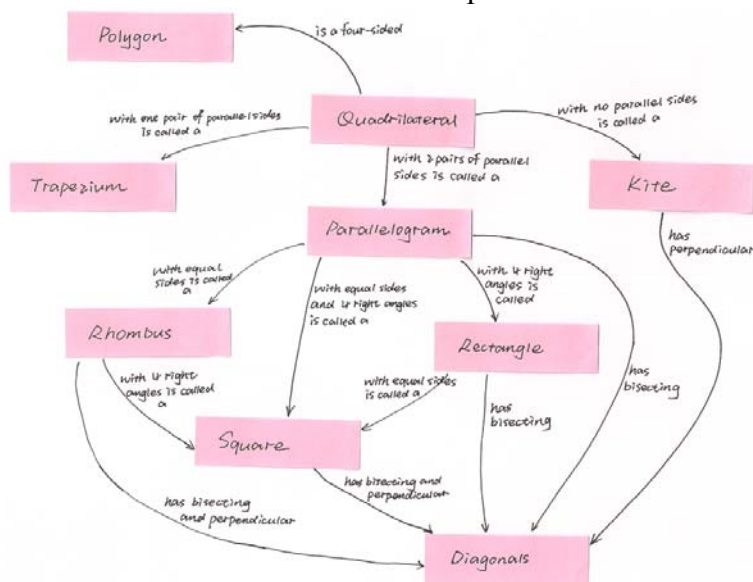 Polygon
is a four-sided
Quadrilateral
with one pair of parallel sides
is called a
with no parallel sides
is called a
with 2 pairs of parallel
sides is called a
Trapezium
Kite
Parallelogram
has
perpendicular
with equal
sides is called
a
with equal sides
and 4 right angles
is called a
with 4 right
angles is
called
Rhombus
Rectangle
with 4 right
angles is called
a
with equal sides
is called a
has
bisecting
has
bisecting
Square
has bisecting and
perpendicular
has bisecting
and perpendicular
Diagonals